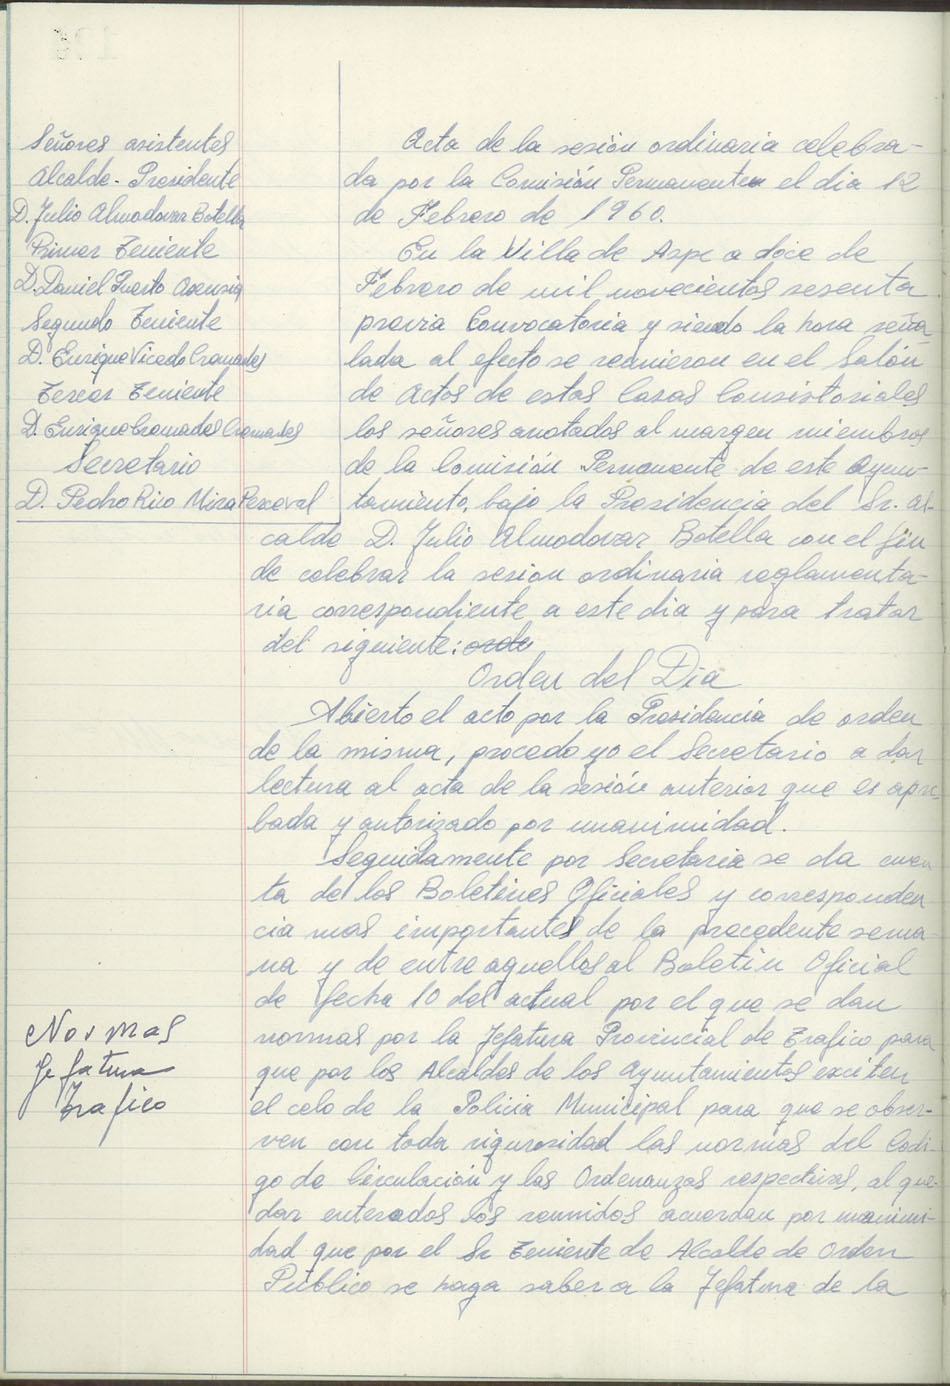 Señores asistentes
Alcalde-Presidente
D. Julio Almodovar Botella
Primer Teniente
D. Daniel Puerto Asensia
Segundo Teniente
D. Enrique Vicedo Cremades
Tercer Teniente
D. Enrique Cremades Cremades
Secretario
D. Pedro Rico Mira Perceval
Acta de la sesión ordinaria celebra-
da por la Comisión Permanente el dia 12
de Febrero de 1960.
En la Villa de Aspe a doce de
Febrero de mil novecientos sesenta
previa Convocatoria y siendo la hora seña
lada al efecto se reunieron en el Salón
de Actos de estas Casas Consistoriales
los señores anotados al margen miembros
de la Comisión Permanente de este Ayun-
tamiento, bajo la Presidencia del Sr. Al-
calde D. Julio Almodovar Botella con el fin
de celebrar la sesion ordinaria reglamenta-
ria correspondiente a este dia y para tratar
del siguiente: orde
Orden del Dia
Abierto el acto por la Presidencia de orden
de la misma, procedo yo el Secretario a dar
lectura al acta de la sesión anterior que es apro
bada y autorizado por unanimidad.
Seguidamente por Secretaria se da cuen
ta de los Boletines Oficiales y corresponden
cia mas importantes de la precedente sema-
na y de entre aquellos al Boletin Oficial
de fecha 10 del actual por el que se dan
normas por la Jefatura Provincial de Trafico para
que por los Alcaldes de los Ayuntamientos exciten
el celo de la Policia Municipal para que se obser-
ven con toda rigurosidad las normas del Codi-
go de Circulación y las Ordenanzas respectivas, al que-
dar enterados los reunidos acuerdan por unanimi-
dad que por el Sr Teniente de Alcalde de Orden
Público se haga saber a la Jefatura de la
Normas
Jefatura
Trafico